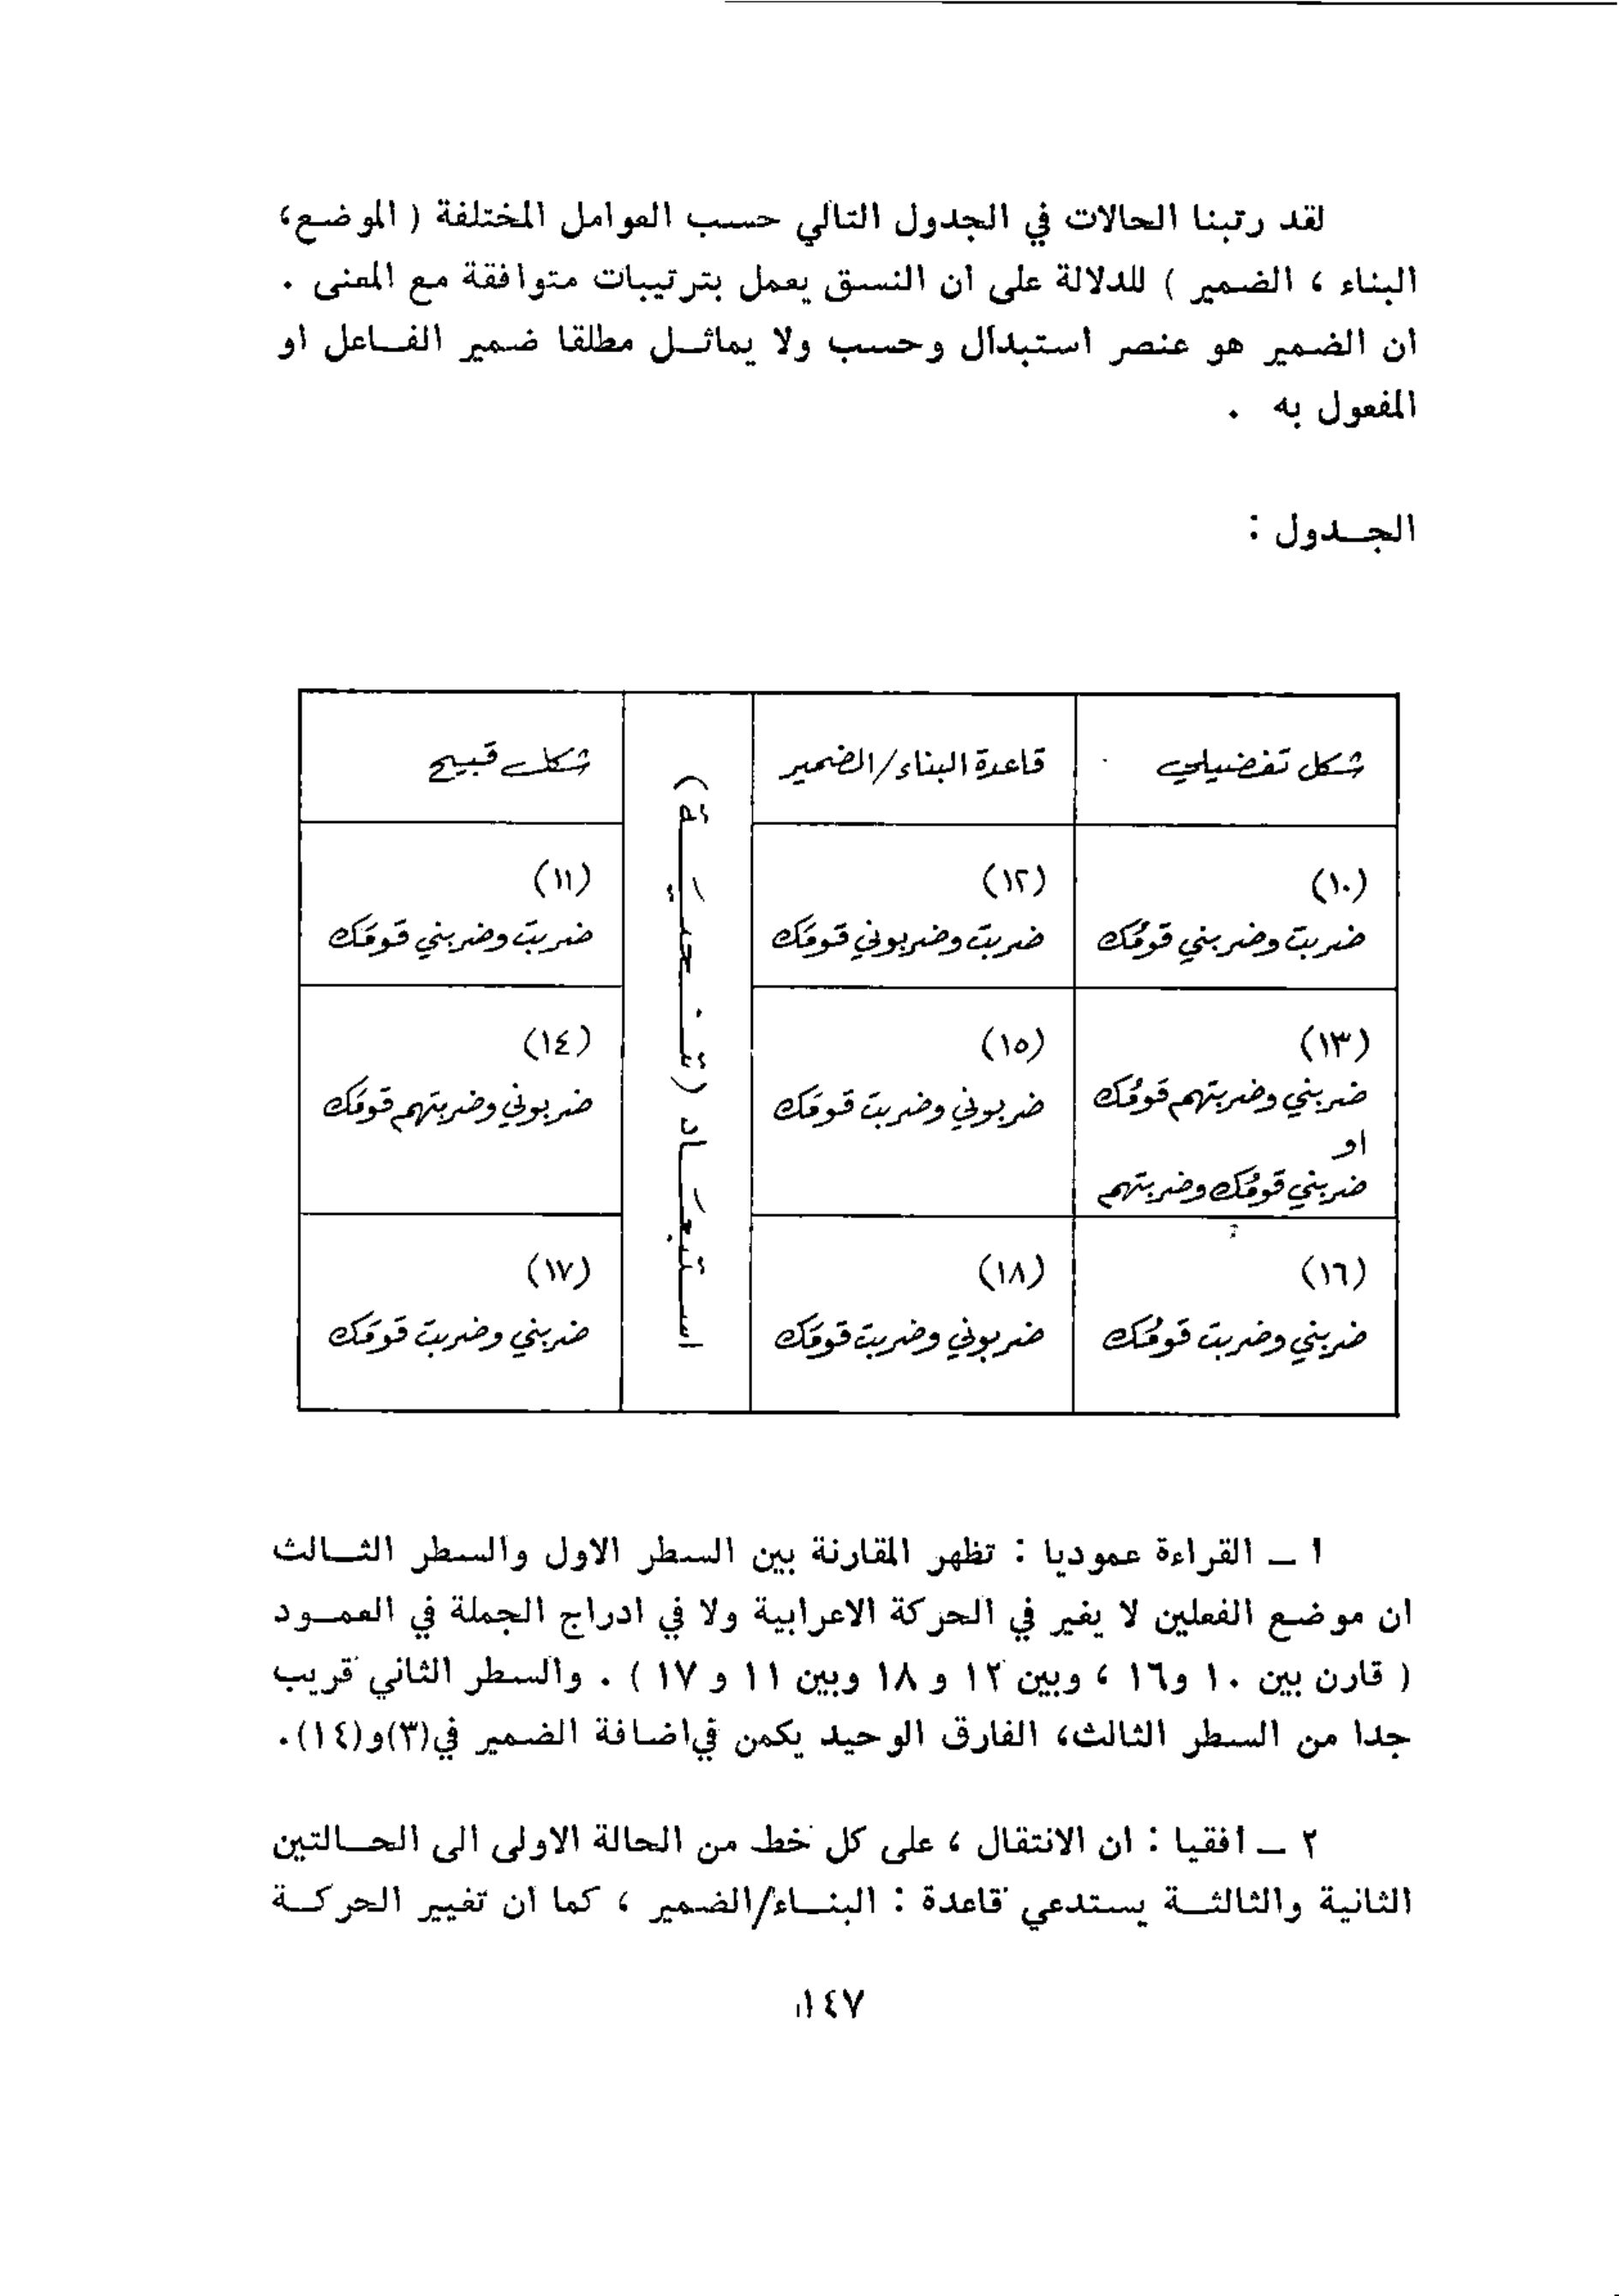 لقد رتبنا الحالات في الجدول التالي حسب العوامل المختلفة ( الموضع،
البناء ، الضمير ) للدلالة على ان النسق يعمل بترتيبات متوافقة مع المعنى .
ان الضمير هو عنصر استبدال وحسب ولا يماثل مطلقا ضمير الفاعل او
المفعول به .
الجدول :
شكل تفضيلي
قاعدة البناء/الضمير
استبعَاد (تنحيَة)
شكل قبيح
(١٠)
ضربتَ وضربني قومُك
(١٢)
ضربتَ وضربوني قومَك
(١١)
ضربتَ وضربني قومَك
(١٣)
ضربني وضربتهم قومُك
او
ضربني قومُك وضربتهم
(١٥)
ضربوني وضربتَ قومَك
(١٤)
ضربوني وضربتهم قومَك
(١٦)
ضربني وضربتَ قومُك
(١٨)
ضربوني وضربتَ قومَك
(١٧)
ضربني وضربتَ قومَك
١ ـ القراءة عموديا : تظهر المقارنة بين السطر الاول والسطر الثالث
ان موضع الفعلين لا يغير في الحركة الاعرابية ولا في ادراج الجملة في العمود
( قارن بين ١٠ و١٦ ، وبين ١٢ و ١٨ وبين ١١ و ١٧ ) . والسطر الثاني قريب
جدا من السطر الثالث، الفارق الوحيد يكمن في اضافة الضمير في(٣)و(١٤).
٢ ـ افقيا : ان الانتقال ، على كل خط من الحالة الاولى الى الحالتين
الثانية والثالثة يستدعي قاعدة : البناء/الضمير ، كما ان تغيير الحركة
١٤٧